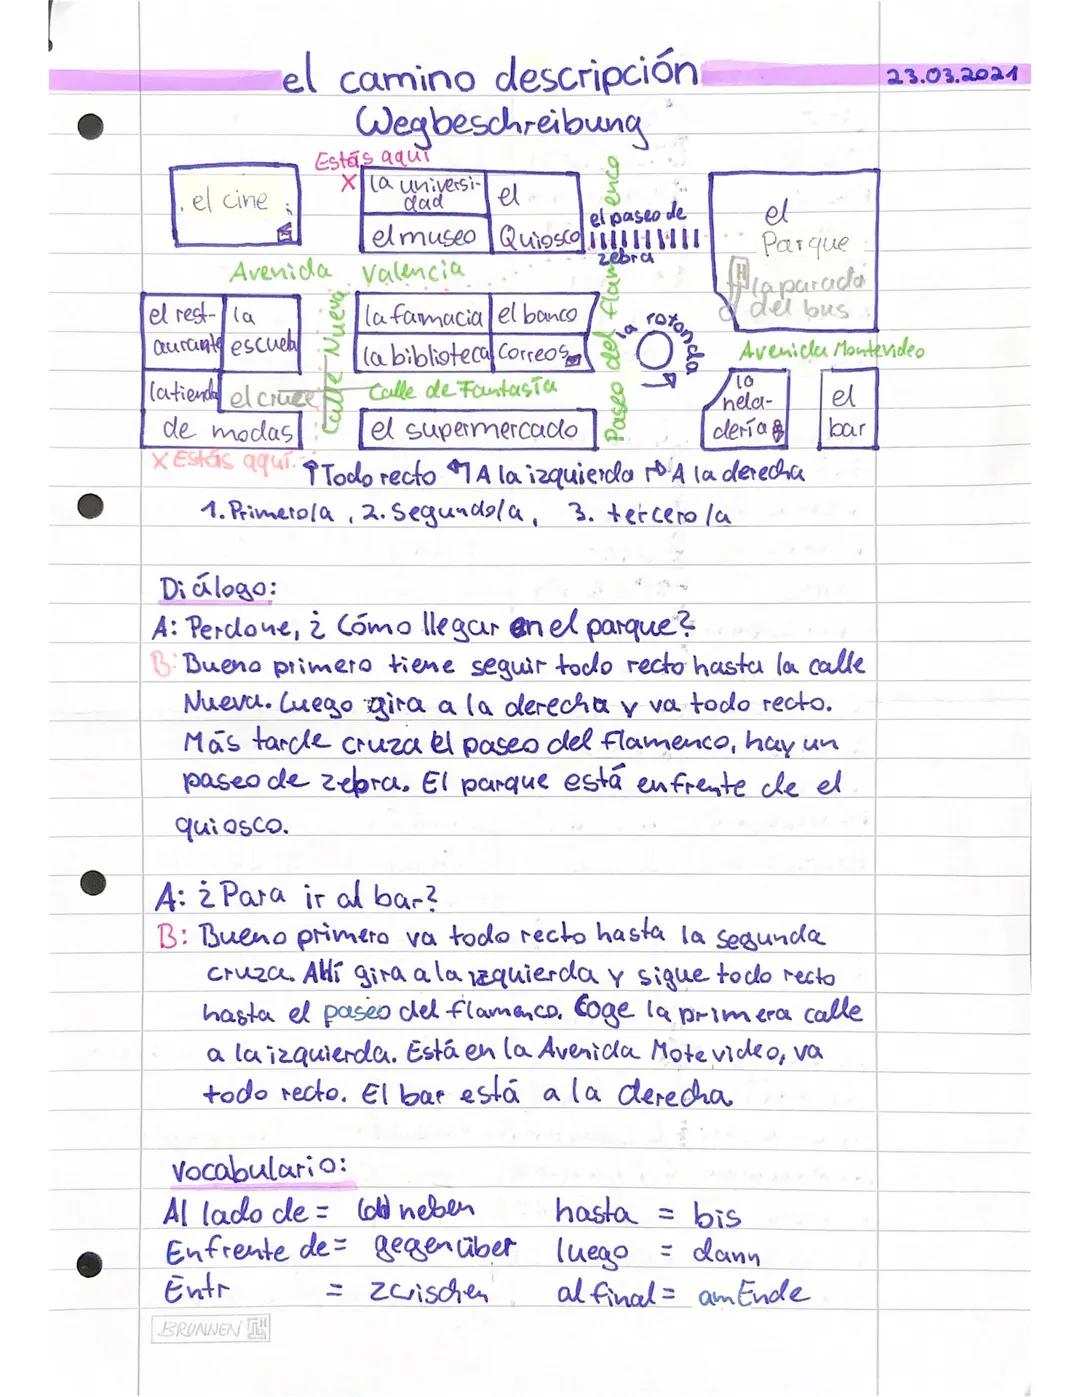 el camino descripción
23.03.2021
Wegbeschreibung
Estás aquí
X
el cine
la universi-
dad
el
Quiosco
el museo
el paseo de
zebra
el
Parque
H la parada
del bus
Avenida Valencia
Calle Nueva
Paseo del flamenco
el rest-
aurante
la
escuela
la farmacia
el banco
la biblioteca
Correos
la rotonda
Avenida Montevideo
la tienda
de modas
el cruze
Calle de Fantasía
el supermercado
la
hela-
dería
el
bar
X Estás aquí
↑ Todo recto ↰ A la izquierda ↱ A la derecha
1. Primero/a, 2. Segundo/a, 3. tercero/a
Diálogo:
A: Perdone, ¿Cómo llegar en el parque?
B: Bueno primero tiene seguir todo recto hasta la calle
Nueva. Luego gira a la derecha y va todo recto.
Más tarde cruza el paseo del flamenco, hay un
paseo de zebra. El parque está enfrente de el
quiosco.
A: ¿Para ir al bar?
B: Bueno primero va todo recto hasta la segunda
cruza. Allí gira a la izquierda y sigue todo recto
hasta el paseo del flamenco. Coge la primera calle
a la izquierda. Está en la Avenida Motevideo, va
todo recto. El bar está a la derecha
vocabulario:
Al lado de = neben
hasta = bis
Enfrente de = gegenüber
luego = dann
Entr = zwischen
al final = am Ende
BRUNNEN